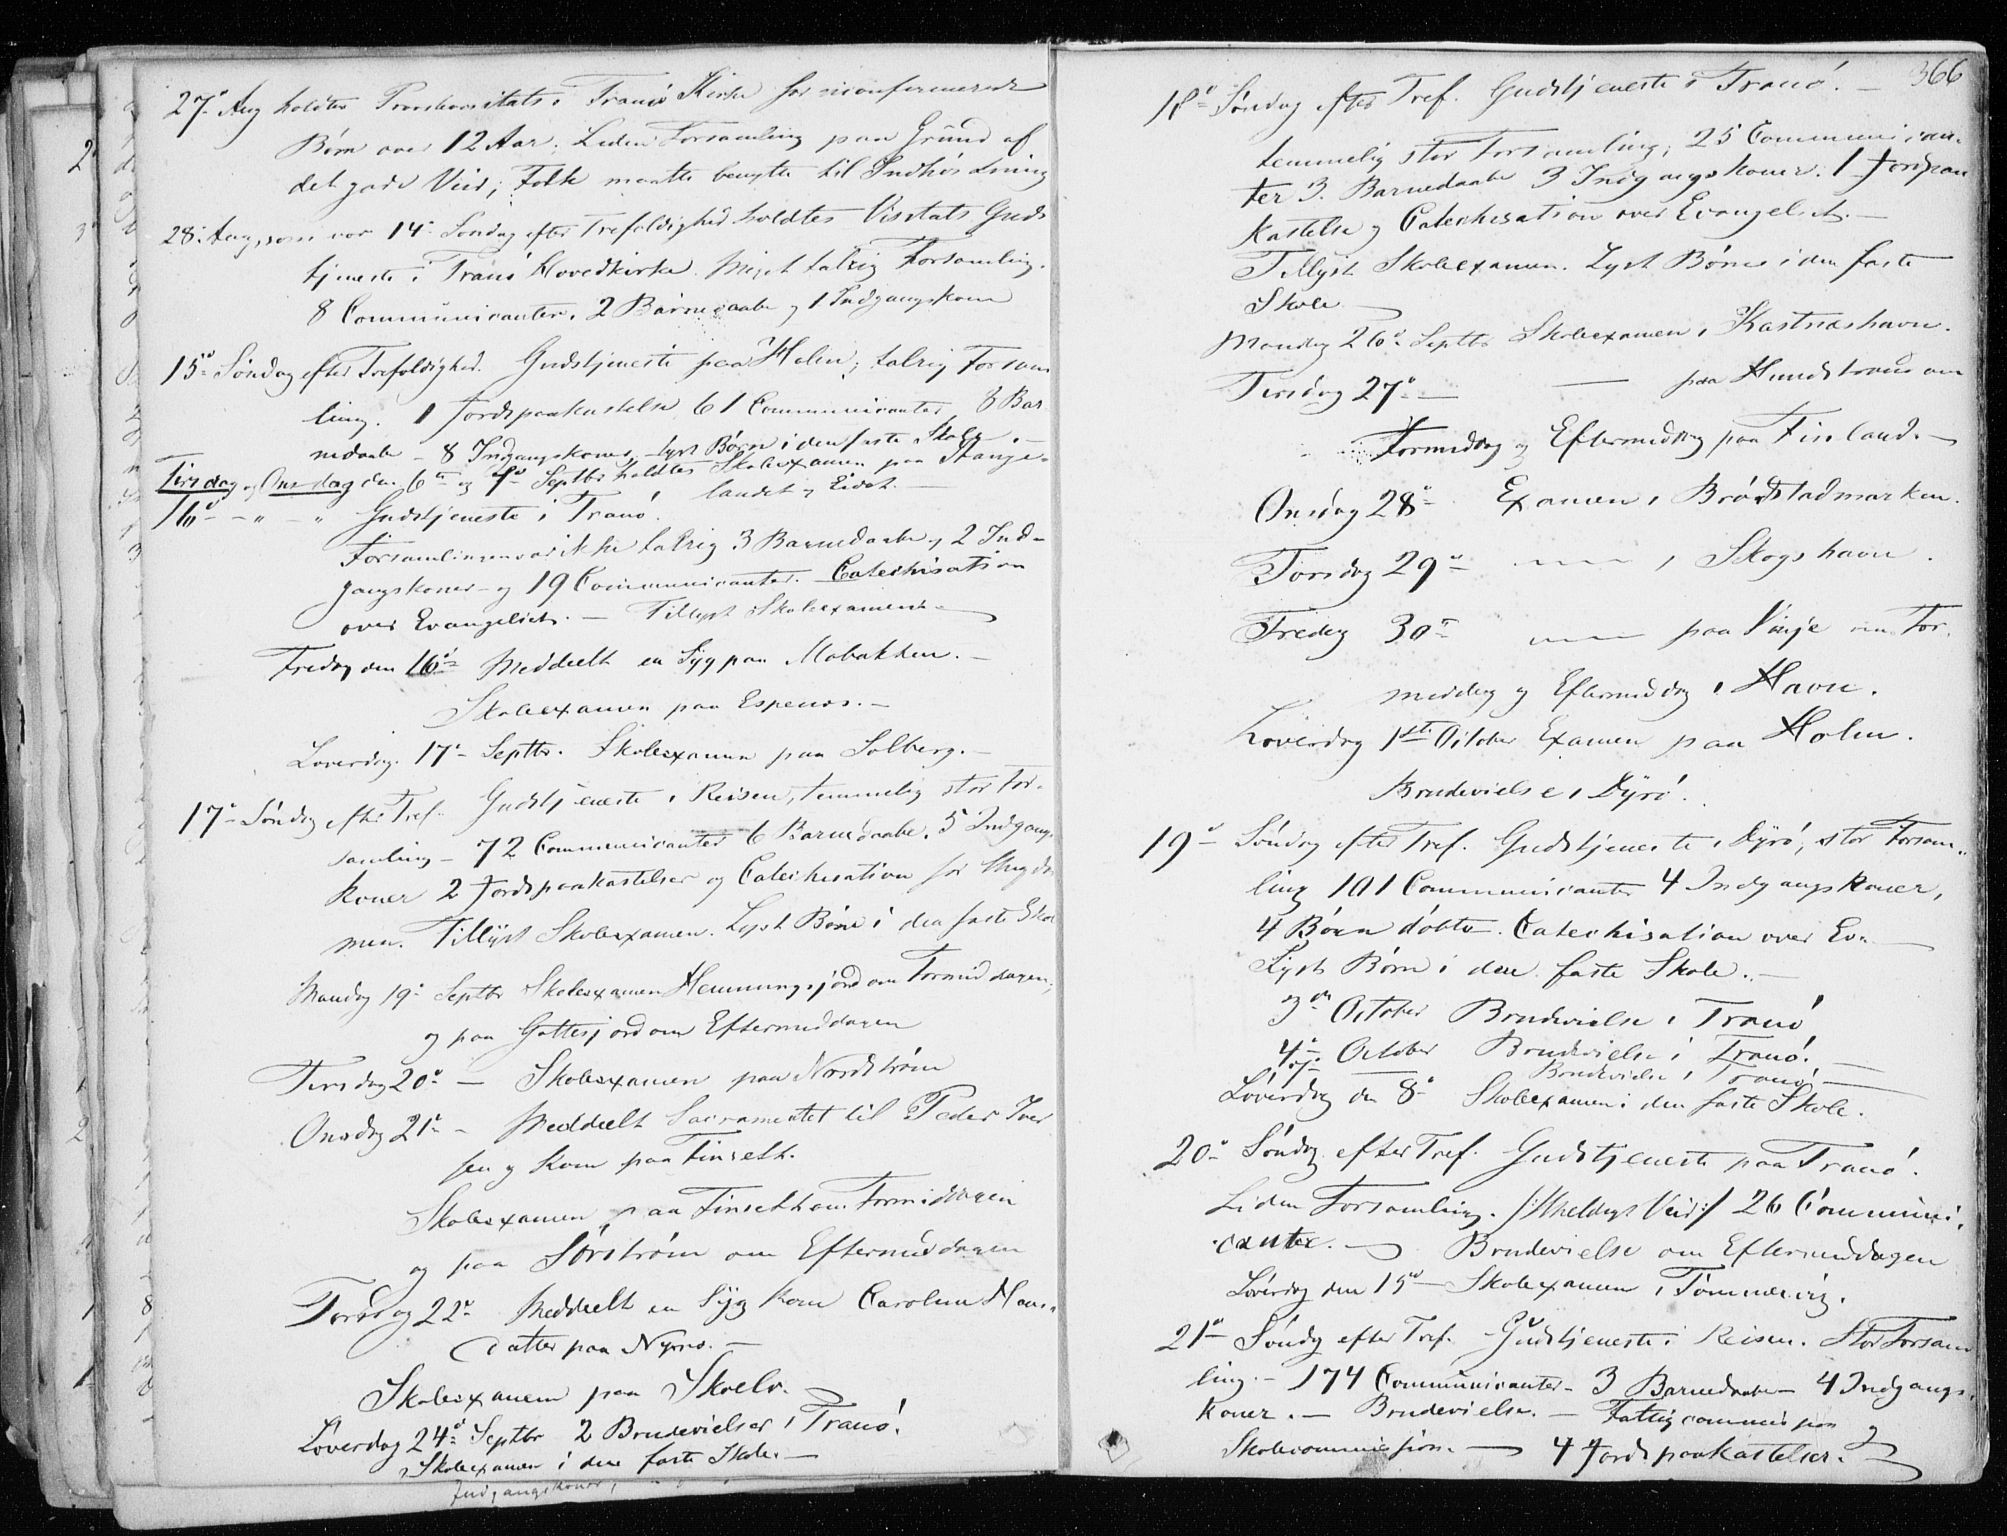 27de Aug holdtes Provstevisitats i Tranö Kirke for uconfirmerede
Börn over 12 Aar. Liden Forsamling paa Grund af
det gode Veir; Folk maatte benytte til Indhöstning
28. Aug, som var 14de Söndag efter Trefoldighed holdtes Visitats Guds
tjeneste i Tranö Hovedkirke. Meget talrig Forsamling.
8 Communicanter, 2 Barnedaabe og 1 Indgangskone
15de Söndag efter Trefoldighed. Gudstjeneste paa Holm; talrig Forsam
ling. 1 Jordspaakastelse, 61 Communicanter, 8 Bar
nedaabe - 8 Indgangskoner, lyst Börn i den faste Skole. -
Tirsdag og Onsdag den 6te og 7de Septbr holdtes Skoleexamen paa Stange-
landet og Eidet. -
16de - " - " Gudstjeneste i Tranö.
Forsamlingen var ikke talrig 3 Barnedaabe, 2 Ind-
gangskoner - og 19 Communicanter. Catechisation
over Evangeliet. - Tillyst Skoleexamen -
Fredag den 16de Meddeelt en Syg paa Mobakken. -
Skoleexamen paa Espenes. -
Löverdag. 17de Septbr. Skoleexamen paa Solberg. -
17de Söndag efter Tref. Gudstjeneste i Reisen, temmelig stor For-
samling - 72 Communicanter 6 Barnedaabe. 5 Indgangs
koner 2 Jordspaakastelser og Catechisation for Ungdom
men. Tillyst Skoleexamen. Lyst Börn i den faste Skole
Mandag 19de Septbr Skoleexamen Hemmingsjord om Formiddagen,
og paa Gottesjord om Eftermiddagen
Tirsdag 20de - Skoleexamen paa Nordström
Onsdag 21de - Meddeelt Sacramentet til Peder Iver
sen og Kone paa Finseth.
Skoleexamen paa Finseth om Formiddagen
og paa Sörström om Eftermiddagen
Torsdag 22de Meddeelt en Syg Kone Carolina Hans-
datter paa Nymo. -
Skoleexamen paa Skoelv.
Löverdag 24de Septbr 2 Brudevielser i Tranö.
Skoleexamen i den faste Skole. -
Indgangskoner,
366
18de Söndag efter Tref. Gudstjeneste i Tranö. -
temmelig stor Forsamling; 25 Communican-
ter 3. Barnedaabe 3 Indgangskoner. 1 Jordpaa
kastelse og Catechisation over Evangeliet. -
Tillyst Skoleexamen. Lyst Börn i den faste
Skole -
Mandag 26de Septbr Skoleexamen i Kastneshavn.
Tirsdag 27de - - paa Hundstranö om
Formidag og Eftermiddag paa Finland. -
Onsdag 28de - Examen i Brödstadmarken.
Torsdag 29de - i Skogshavn.
Fredag 30te - paa Vinje om For-
middag og Eftermiddag i Havn.
Löverdag 1ste October Examen paa Holm.
Brudevielse i Dyrö.
19de Söndag efter Tref. Gudstjeneste i Dyrö, stor Forsam-
ling 101 Communicanter 4 Indgangskoner,
4 Börn döbte. Catechisation over Ev. -
Lyst Börn i den faste Skole. -
3die October Brudevielse i Tranö
4de October Brudevielse i Tranö. -
7de - Brudevielse i Tranö. -
Löverdag den 8de Skoleexamen i den faste Skole.
20de Söndag efter Tref. Gudstjeneste paa Tranö.
Liden Forsamling. /:Uheldigt Veir:/ 26 Communi-
canter. - Brudevielse om Eftermiddagen
Löverdag den 15de - Skoleexamen i Tömmervig.
21de Söndag efter Tref. Gudstjeneste i Reisen. Stor Forsam
ling. - 174 Communicanter - 3 Barnedaabe - 4 Indgangs-
koner. - Brudevielse. - Fattigcommission og
Skolecommission. - 4 Jordspaakastelser.